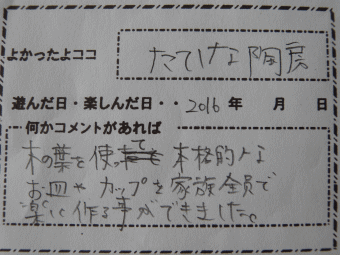 よかったよココ
たてしな陶房
遊んだ日・楽しんだ日・・2016年 月 日
何かコメントがあれば
木の葉を使って本格的な
お皿やカップを家族全員で
楽しく作る事ができました。